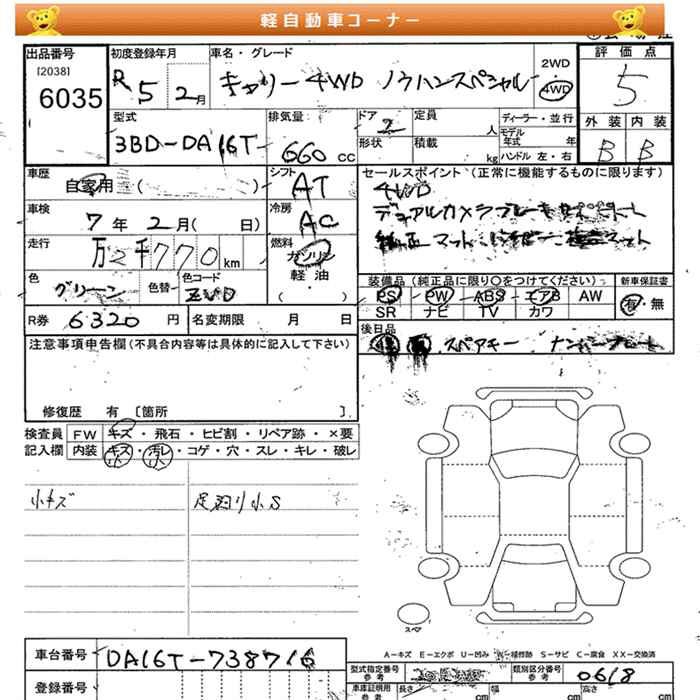 軽自動車コーナー
出品番号 初度登録年月 車名・グレード 評価点
[2038]
6035 R5 2月 キャリー4WD ノウハンスペシャル 2WD 4WD 5
型式 排気量 ドア 定員 ディーラー・並行 外装 内装
3BD-DA16T 660cc 2 人 モデル年式 年 B B
形状 積載 kg ハンドル 左・右
車歴 シフト セールスポイント(正常に機能するものに限ります)
自家用( ) AT 4WD
車検 冷房 デュアルカメラブレーキサポート
7年2月( 日) AC 純正マット
走行 燃料
万2千770km ガソリン
軽・油
( )
色 色替 色コード 装備品(純正品に限り○をつけてください) 新車保証書
グリーン ZVD PS PW ABS エアB AW 有・無
SR ナビ TV カワ
R券 6320円 名変期限 月 日 後日品
スペアキー ナンバープレート
注意事項申告欄(不具合内容等は具体的に記入して下さい)
修復歴 有 [箇所 ].
検査員 FW キズ・飛石・ヒビ割・リペア跡・×要
記入欄 内装 キズ・汚レ・コゲ・穴・スレ・キレ・破レ
小 小
小キズ 足廻り小S
A−キズ E−エクボ U−凹み W−補修跡 S−サビ C−腐食 XX−交換済
車台番号 DA16T-738716 型式指定番号 参考 類別区分番号 参考 0618
登録番号 車庫証明用 参考 長さ cm 幅 cm 高さ cm